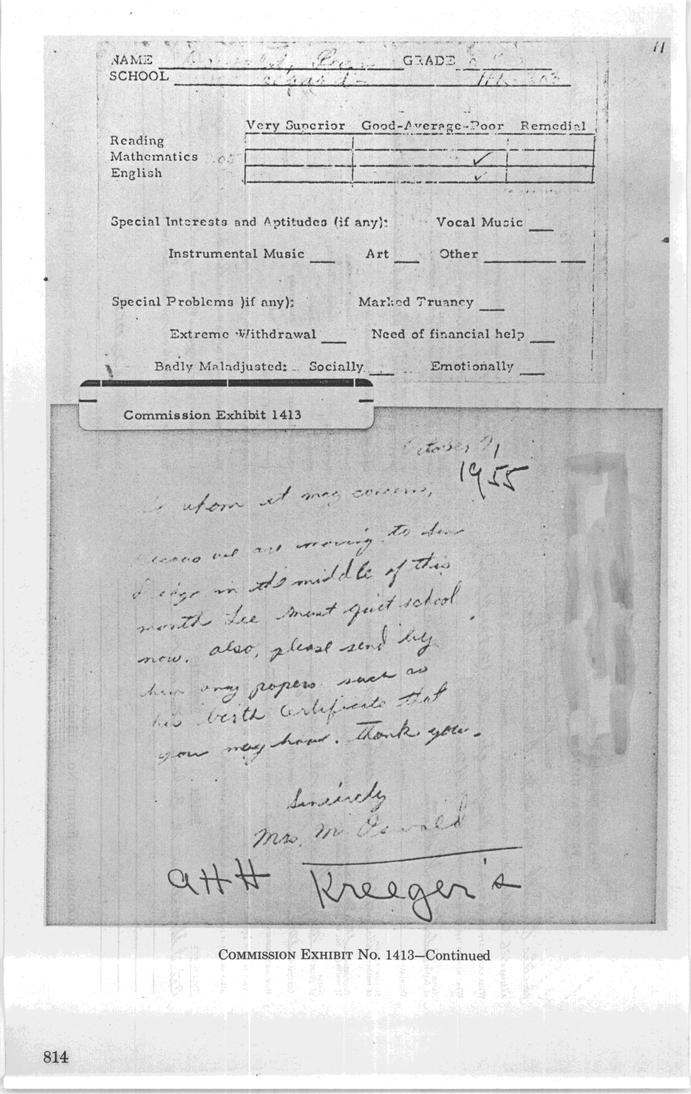 11
NAME Oswald, GRADE
SCHOOL
Very Superior Good-Average-Poor Remedial
Reading
Mathematics ✓
English ✓
Special Interests and Aptitudes (if any): Vocal Music ___
Instrumental Music ___ Art ___ Other ___
Special Problems )if any): Marked Truancy ___
Extreme Withdrawal ___ Need of financial help ___
Badly Maladjusted: Socially ___ Emotionally ___
Commission Exhibit 1413
October
1955
whom it may concern,
we are moving to San
in the middle of this
month Lee must quit school
now. also, please send by
him any papers such as
his birth certificate that
you may have. Thank you.
Sincerely
Mrs. M. Oswald
Kreeger's
COMMISSION EXHIBIT No. 1413—Continued
814